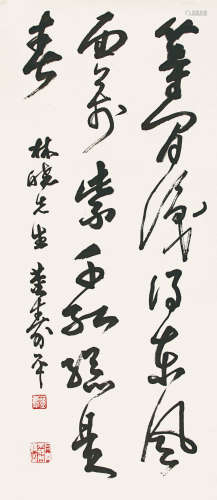 等闲识得东风
面万紫千红总是
春
林晓先生
董寿平